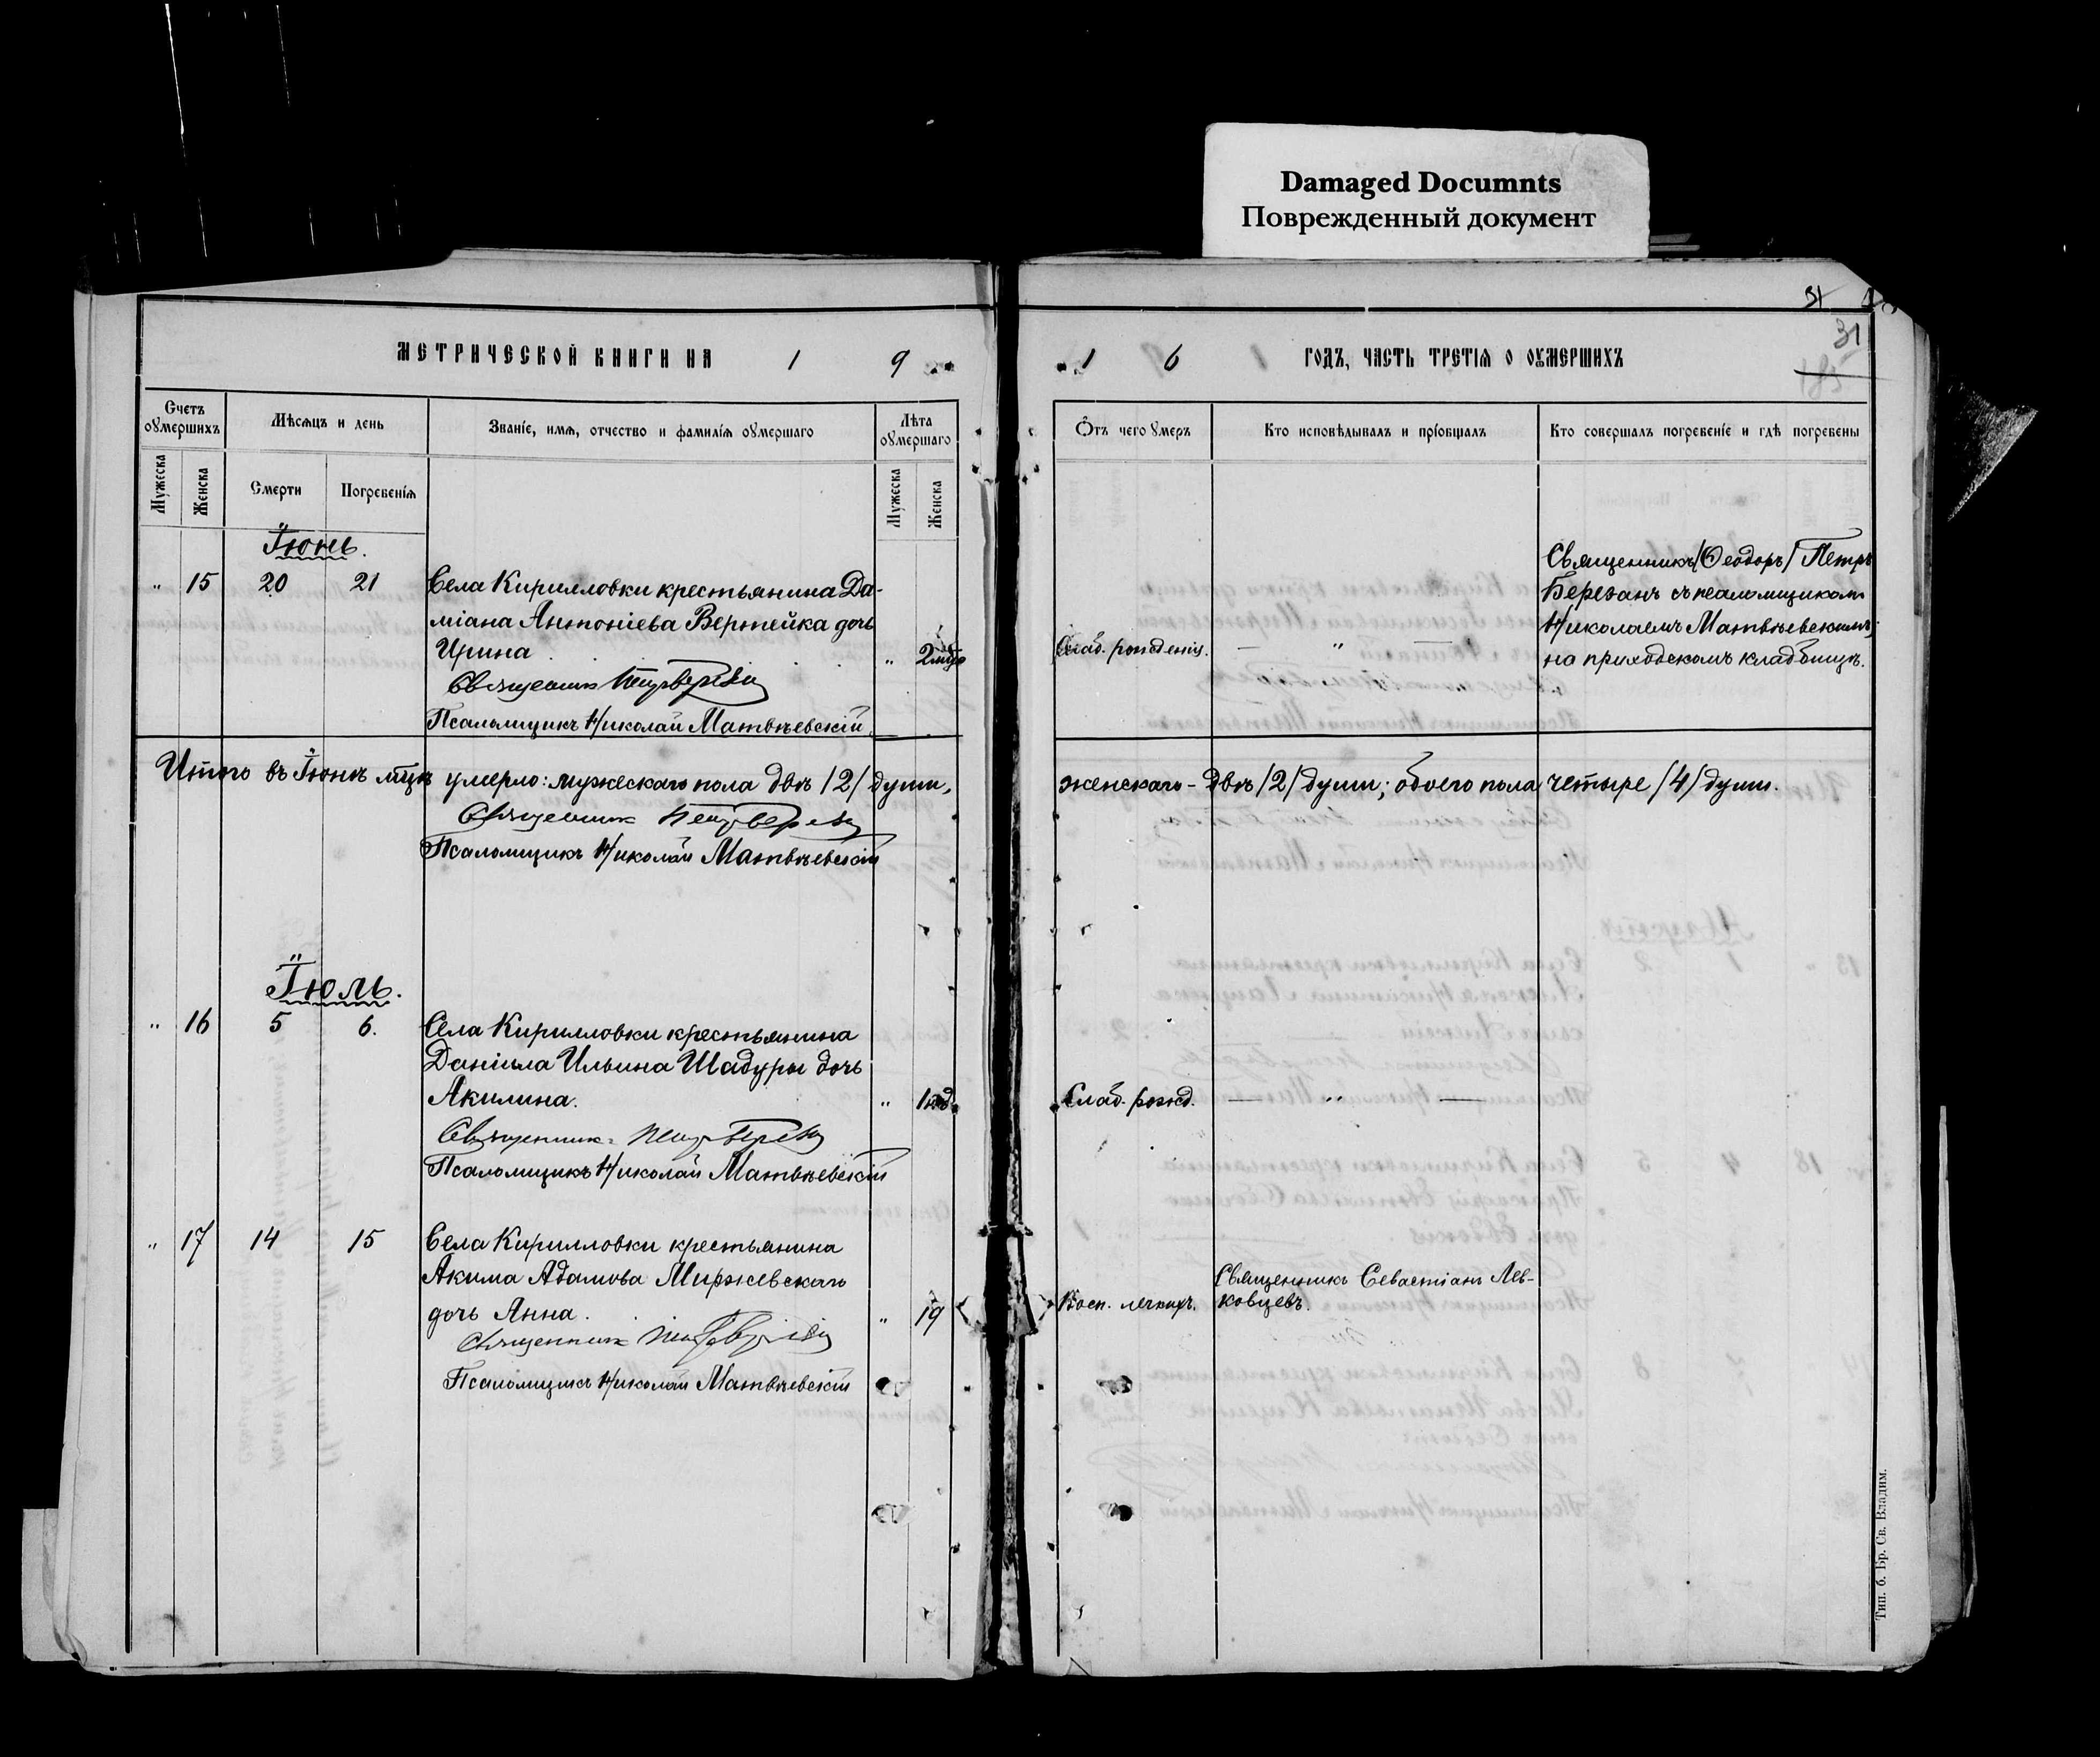 Damaged Documnts
Поврежденный документ
31
31
185
МЕТРИЧЕСКОЙ КНИГИ НА 1 9
1 6 ГОДЪ, ЧАСТЬ ТРЕТІЯ О ОУМЕРШИХЪ
Счетъ оумершихъ
Мѣсяцъ и день
Званіе, имя, отчество и фамилія оумершаго
Лѣта оумершаго
Отъ чего умеръ
Кто исповѣдывалъ и пріобщалъ
Кто совершалъ погребеніе и гдѣ погребены
Мужеска
Женска
Смерти
Погребенія
Мужеска
Женска
Іюнь.
" 15 20 21 Села Кирилловки крестьянина Да-
міана Антоніева Вертейка дочь
Ирина " 2 мѣс. Слаб. рожденія. — " —
Священникъ
Псаломщикъ Николай Матвѣевскій.
Священникъ /Ѳеодоръ/ Петръ
Березанъ съ псаломщикомъ
Николаемъ Матвѣевскимъ;
на приходскомъ кладбищѣ.
Итого въ Іюнѣ мцѣ умерло: мужескаго пола двѣ /2/ души, женскаго - двѣ /2/ души; обоего пола четыре /4/ души.
Священникъ
Псаломщикъ Николай Матвѣевскій
Іюль.
" 16 5 6. Села Кирилловки крестьянина
Даніила Ильина Шадуры дочь
Акилина. " 1 год. Слаб. рожд. — " —
Священникъ
Псаломщикъ Николай Матвѣевскій
" 17 14 15 Села Кирилловки крестьянина
Акима Адамова Миржевскаго
дочь Анна. " 19 Восп. легкихъ.
Священникъ Севастіанъ Лев-
ковцевъ.
Священникъ
Псаломщикъ Николай Матвѣевскій
Тип. б. Бр. Св. Владим.